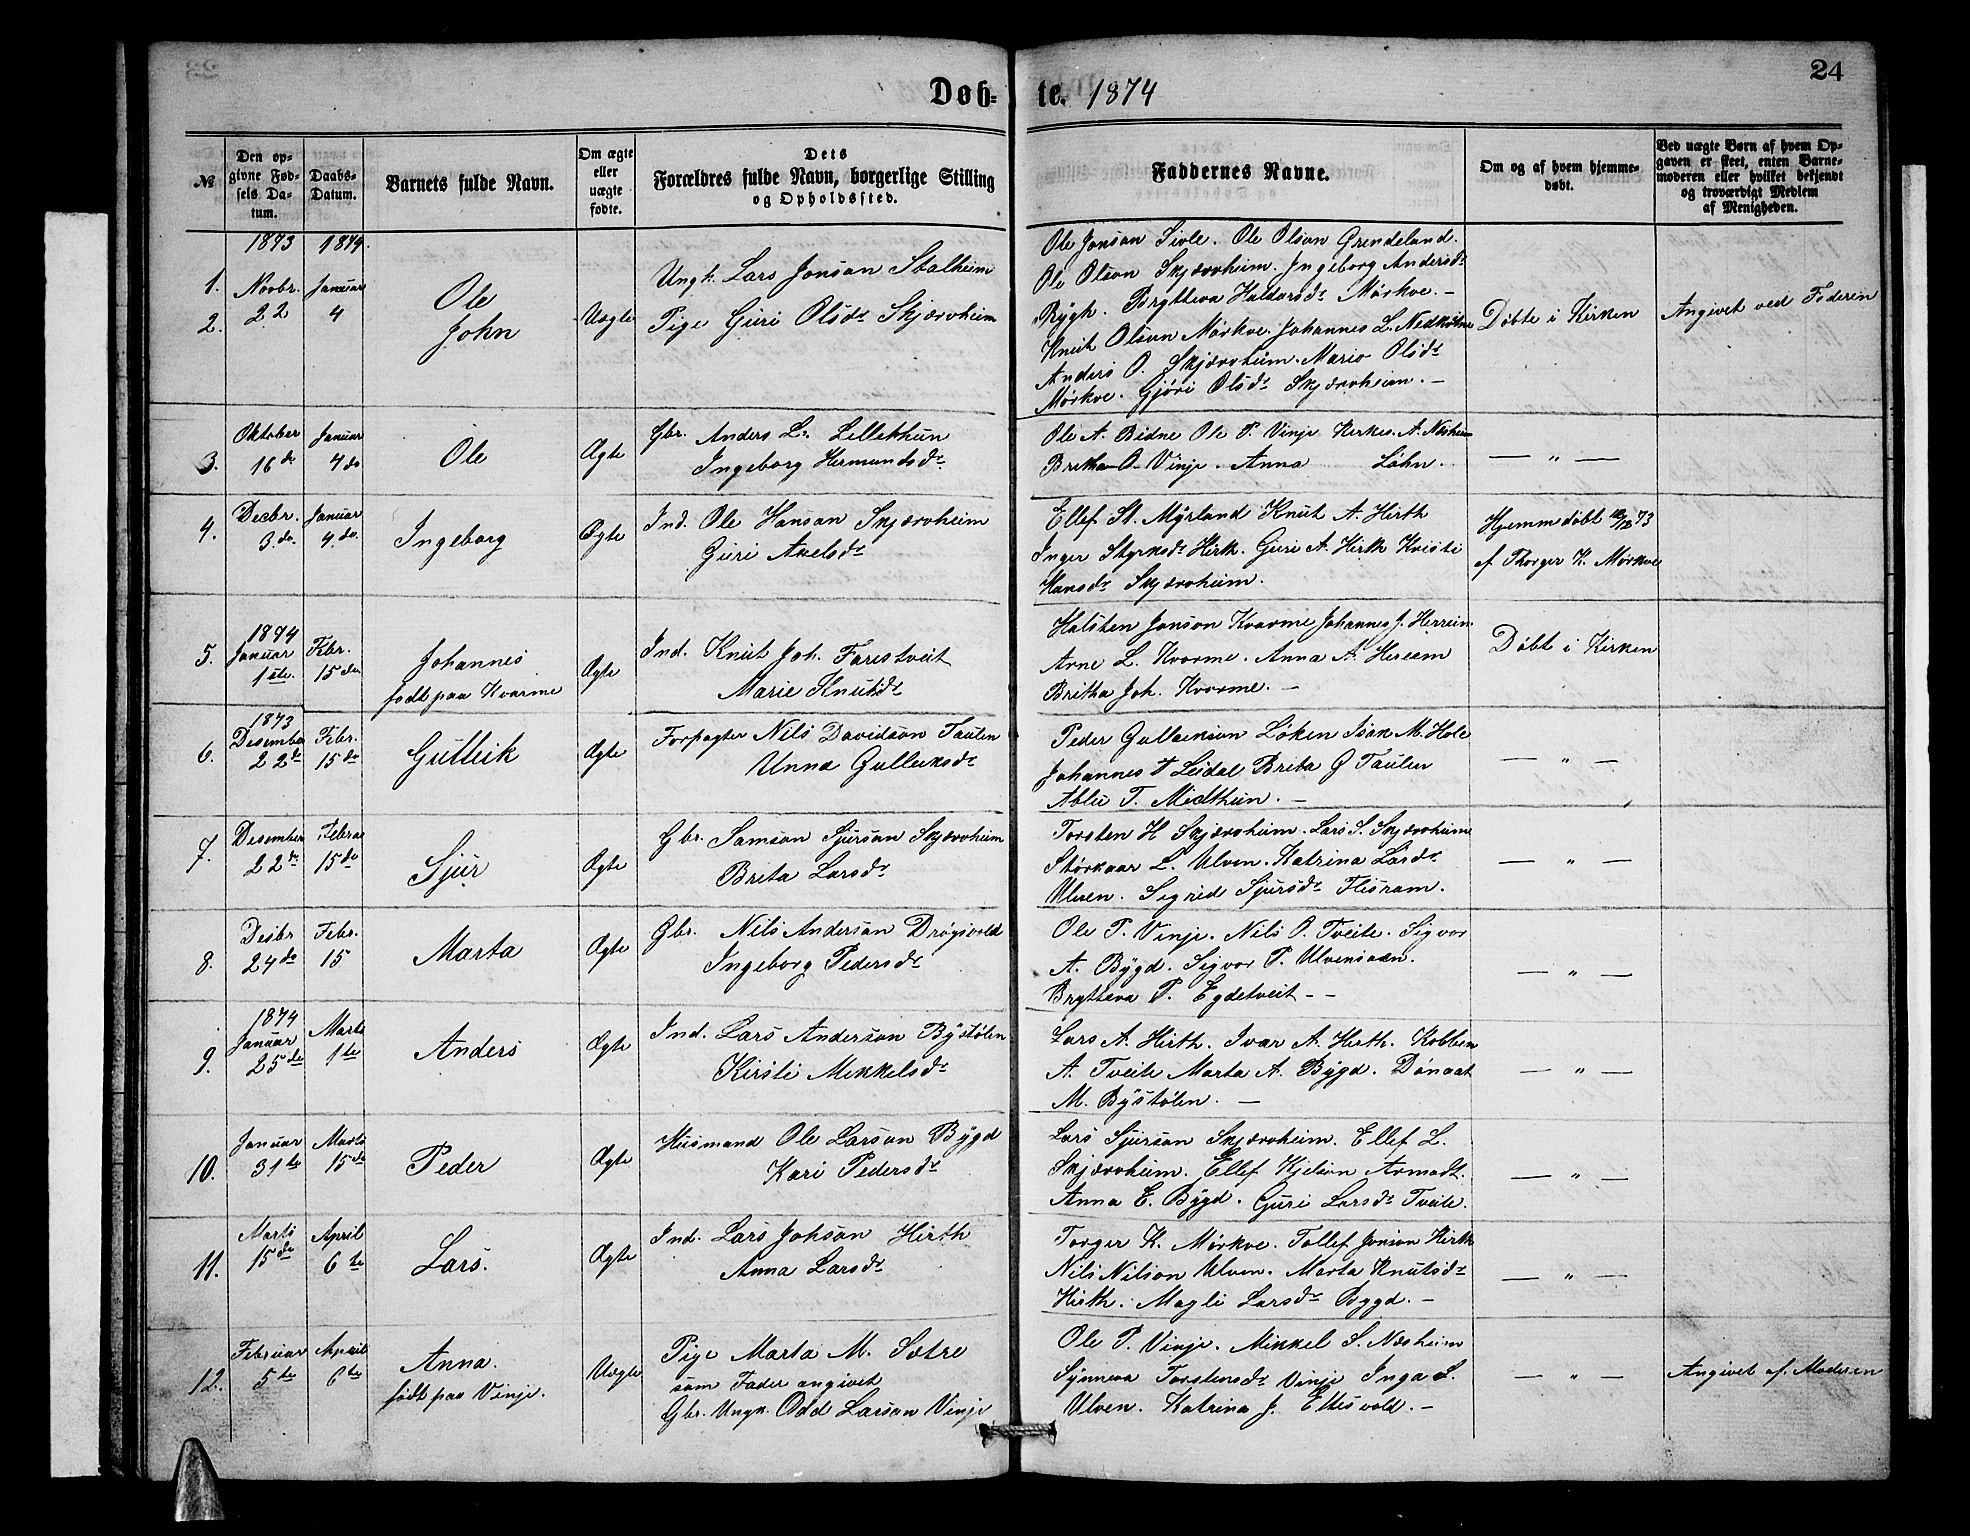 Døb-te. 1874
24
№
Den op-
givne Fød-
sels Da-
tum.
Daabs-
Datum.
Barnets fulde Navn.
Om ægte
eller
uægte
fødte.
Dets
Forældres fulde Navn, borgerlige Stilling
og Opholdssted.
Faddernes Navne.
Om og af hvem hjemme-
døbt.
Ved uægte Børn af hvem Op-
gaven er skeet, enten Barne-
moderen eller hvilket bekjendt
og troværdigt Medlem
af Menigheden.
1873 1874.
1.
2.
Novbr.
22
Januar
4
Ole
John
Uægte
Ungk. Lars Jonson Stalheim
Pige Guri Olsdr Skjærvheim
Ole Jonson Sivle. Ole Olson Grendeland.
Ole Olson Skjærvheim. Ingeborg Andersdr
Bygh. Brytteva Haldorsdr Mørkve. -
Knut Olson Mørkve. Johannes L. Nedkvitne
Anders O. Skjærvheim. Mario Olsdr
Mørkve. Gjøri Olsdr Skjærvheim. -
Døbte i Kirken
Angivet ved Faderen
3.
Oktober
16 de
Januar
4 de
Ole
Ægte
Gbr. Anders L. Lillethun
Ingeborg Hermundsdr.
Ole A. Bidne Ole P. Vinje Kirkes. A. Næsheim
Britha O. Vinje. Anna Løhn.
— " —
4.
Decbr.
3. de.
Januar
4. de.
Ingeborg
Ægte
Ind. Ole Hanson Skjærvheim
Guri Axelsdr
Ellef St. Myrland Knut A. Hirth
Inger Styrksdr Hirth. Guri A. Hirth Kristi
Hansdr Skjærvheim.
Hjemmdøbt 73
af Thorger K. Mørkve
5.
1874
Januar
1ste.
Febr.
15 de
Johannes
født paa Kvarme
Ægte
Ind. Knut Joh. Farestveit
Marie Knutsdr
Halsten Jonson Kvarme Johannes J. Herreim
Arne L. Kvarme. Anna A. Hereim
Britha Joh. Kvarme. -
Døbt i Kirken
6.
1873
Desember
22 de
Febr.
15 de
Gulleik
Ægte
Forpagter Nils Davidson Taulen
Unna Gulleiksdr
Peder Løken Isak M. Hole
Johannes T Leidal Brita G Taulen
Ablu T. Midthun. -
— " —
7.
Desember
22 de
Februar
15 de
Sjur
Ægte
Gbr. Samson Sjurson Skjærvheim
Brita Larsdr
Torsten H Skjærvheim. Lars S. Skjærvheim
Størkaar L. Ulven. Katrina Larsdr
Ulven. Sigrid Sjursdr Flisram.
— " —
8.
Desbr
24 de
Febr.
15
Marta
Ægte
Gbr. Nils Anderson Drøgsvold
Ingeborg Pedersdr
Ole P. Vinje. Nils O. Tveite. Sigvor
A. Bygd. Sigvor P. Ulvensaen.
Brytteva P. Egdetveit - -
— " —
9.
1874
Januar
25 de
Marts
1 te
Anders
Ægte
Ind. Lars Anderson Bystølen
Kirsti Mikkelsdr
Lars A. Hirth. Ivar A. Hirth. Kobben
A. Tveite Marta A. Bygd. Dønaat
M. Bystølen. -
— " —
10.
Januar
31 te
Marts
15 de
Peder
Ægte
Husmand Ole Larson Bygd
Kari Pedersdr
Lars Sjurson Skjærvheim. Ellef L.
Skjærvheim. Ellef Kjelson Armodt.
Anna E. Bygd. Guri Larsdr Tveite.
— " —
11.
Marts
15 de
April
6 te
Lars.
Ægte
Ind. Lars Johson Hirth
Anna Larsdr
Torger K. Mørkve. Tollef Jonson Hirth
Nils Nilson Ulven. Marta Knutsdr
Hirth. Magli Larsdr Bygd. -
— " —
12.
Februar
5 te
April
6 te
Anna.
født paa Vinje.
Uægte
Pige Marta M. Sætre
som Fader angivet
Gbr. Ungk. Odd Larson Vinje
Ole P. Vinje. Mikkel S. Næsheim
Synneva Torstensdr Vinje Inga L.
Ulven. Katrina J. Ellisvold. -
— " —
Angivet af Moderen